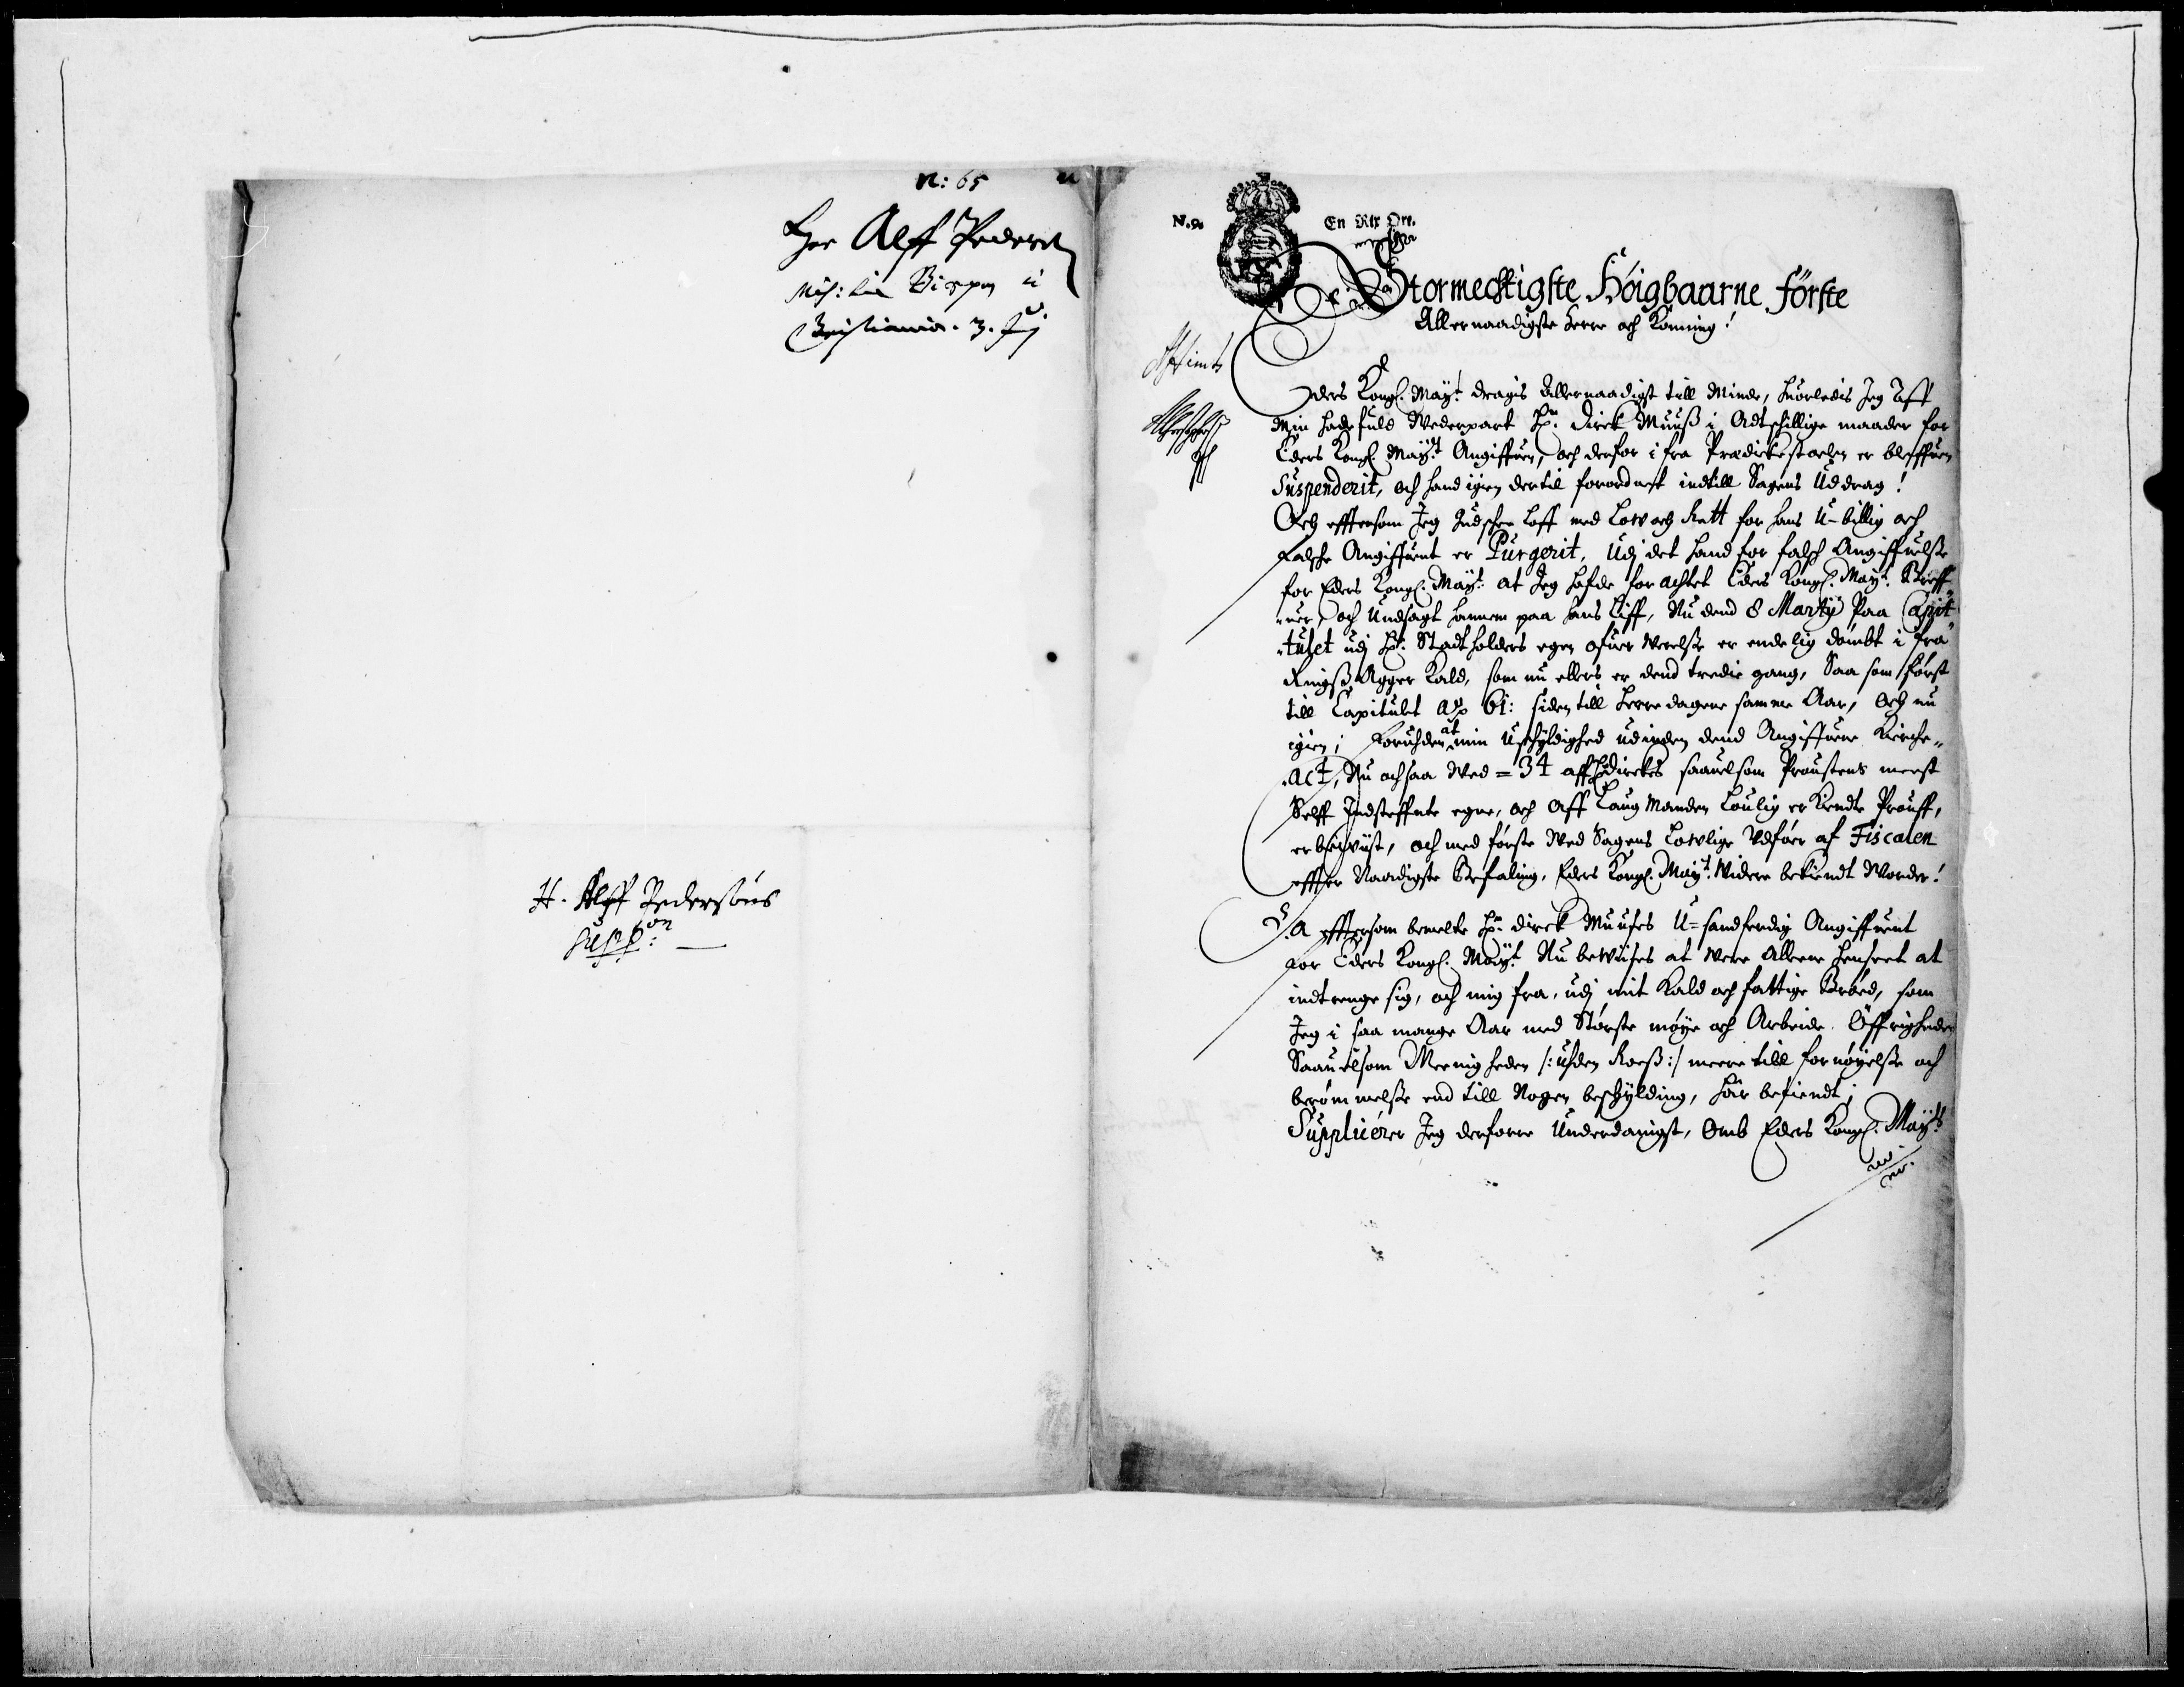 N: 65
Her Alff Pedersen
Miss: til Bispen i
Christiania. 3. Julj
H. Alff Pedersøns
Supp:on
N.9. En Rix Ort.
Stormechtigste Höigbaarne Förste
Allernaadigste Herre och Konning!
Eders Kongl. Mayt. dragis Allernaadigst till Minde, huorledis Jeg Aff
Min hadefuld Wederpart Hr. Dirck Muuss i Adtschillige maader for
Eders Kongl. Mayt. Angiffuen, och derfor i fra Prædickestoelen er bleffuen
Suspenderit, och hand igien dertil forordnet indtill Sagens Uddrag!
Och efftersom Jeg Gudschee Loff med Low och Rett for hans U-billig och
Falsche Angiffuent er Purgerit, Udj det hand for falsch Angiffuelsse
for Eders Kongl. Mayt. at Jeg hafde forachtet Eders Kongl. Mayt. Breff-
uer, och Undsagt hannem paa hans Liff, Nu dend 8 Martij Paa Capit-
tulet udj Hr. Stadtholders egen ofuerwerelsse er endelig dømbt i fra
Ringss Agger Kald, som nu ellers er dend tredie gang, Saa som først
till Capitulet Ao 61: siden till Herredagene samme Aar, och nu
igien; Foruhden at min Uschyldighed udinden dend Angiffuene Kirche-
Act, Nu ochsaa Wed = 34 aff Hr Dirckes saauelsom Proustens meest
Selff Indsteffnte egne, och Aff Laugmanden Loulig er Kiendte Prouff,
er bewiist, och med første Wed Sagens Lowlige Udføer af Fiscalen
effter Naadigste Befaling, Eders Kongl. Mayt. Widere bekiendt Worder!
Da efftersom bemelte Hr. Dirck Muuses U-sandferdig Angiffuent
for Eders Kongl. Mayt. Nu bewiises at Were Alleene henseet at
indtrenge sig, och mig fra, udj mit Kald och fattige Brøed, som
Jeg i saa mange Aar med Største møye och Arbeide Öffrigheden
Saauelsom Meenigheden /: uhden Roess :/ meere till fornøyelsse och
berømmelsse end till Nogen beschylding, har betiendt;
Supplicerer Jeg derforre Underdanigst, Omb Eders Kongl. Mayt.